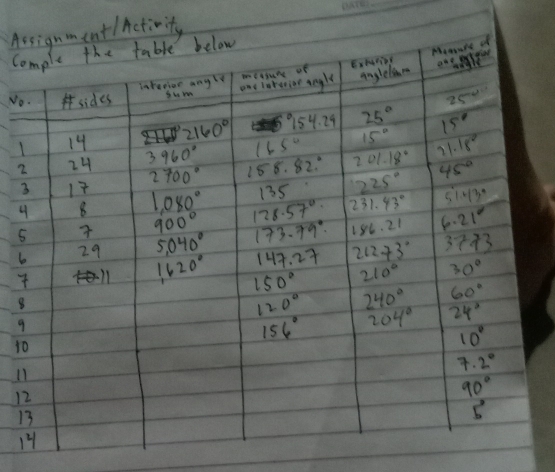 DATE:
Assignment/Activity
Comple the table below
No. # sides interior angle sum measure of one interior angle Exterior angle sum Measure of one angle
25°
1 14 2160° 154.29 25° 15°
2 24 3960° 165° 15° 21.18°
3 17 2700° 158.82° 201.18° 45°
4 8 1,080° 135 225° 51.43°
5 7 900° 128.57° 231.43° 6.21°
6 29 5,040° 173.79° 186.21 37.73
7 11 1,620° 147.27 212.73° 30°
8 150° 210° 60°
9 120° 240° 24°
10 156° 204° 10°
11 7.2°
12 90°
13 5°
14